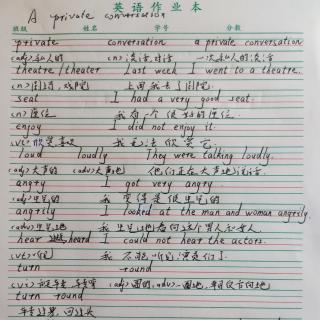 英语作业本
A private conversation
班级 姓名 学号 分数
private conversation a private conversation
<adj>私人的 <n>谈话,对话 一次私人的谈话
theatre/theater Last week I went to a theatre.
<n>剧场,戏院 上周我去了剧院.
seat I had a very good seat.
<n>座位 我有一个很好的座位.
enjoy I did not enjoy it.
<vt>欣赏 我无法欣赏它
loud loudly They were talking loudly.
<adj>大声的 <adv>大声地 他们正在大声地说话.
angry I got very angry
我变得很生气的
angrily I looked at the man and woman angrily.
<adv>生气地 我生气地看向这个男人和女人.
hear heard I could not hear the actors.
<vt>听 我不能听见演员们
turn round
<adj>圆的
turn round